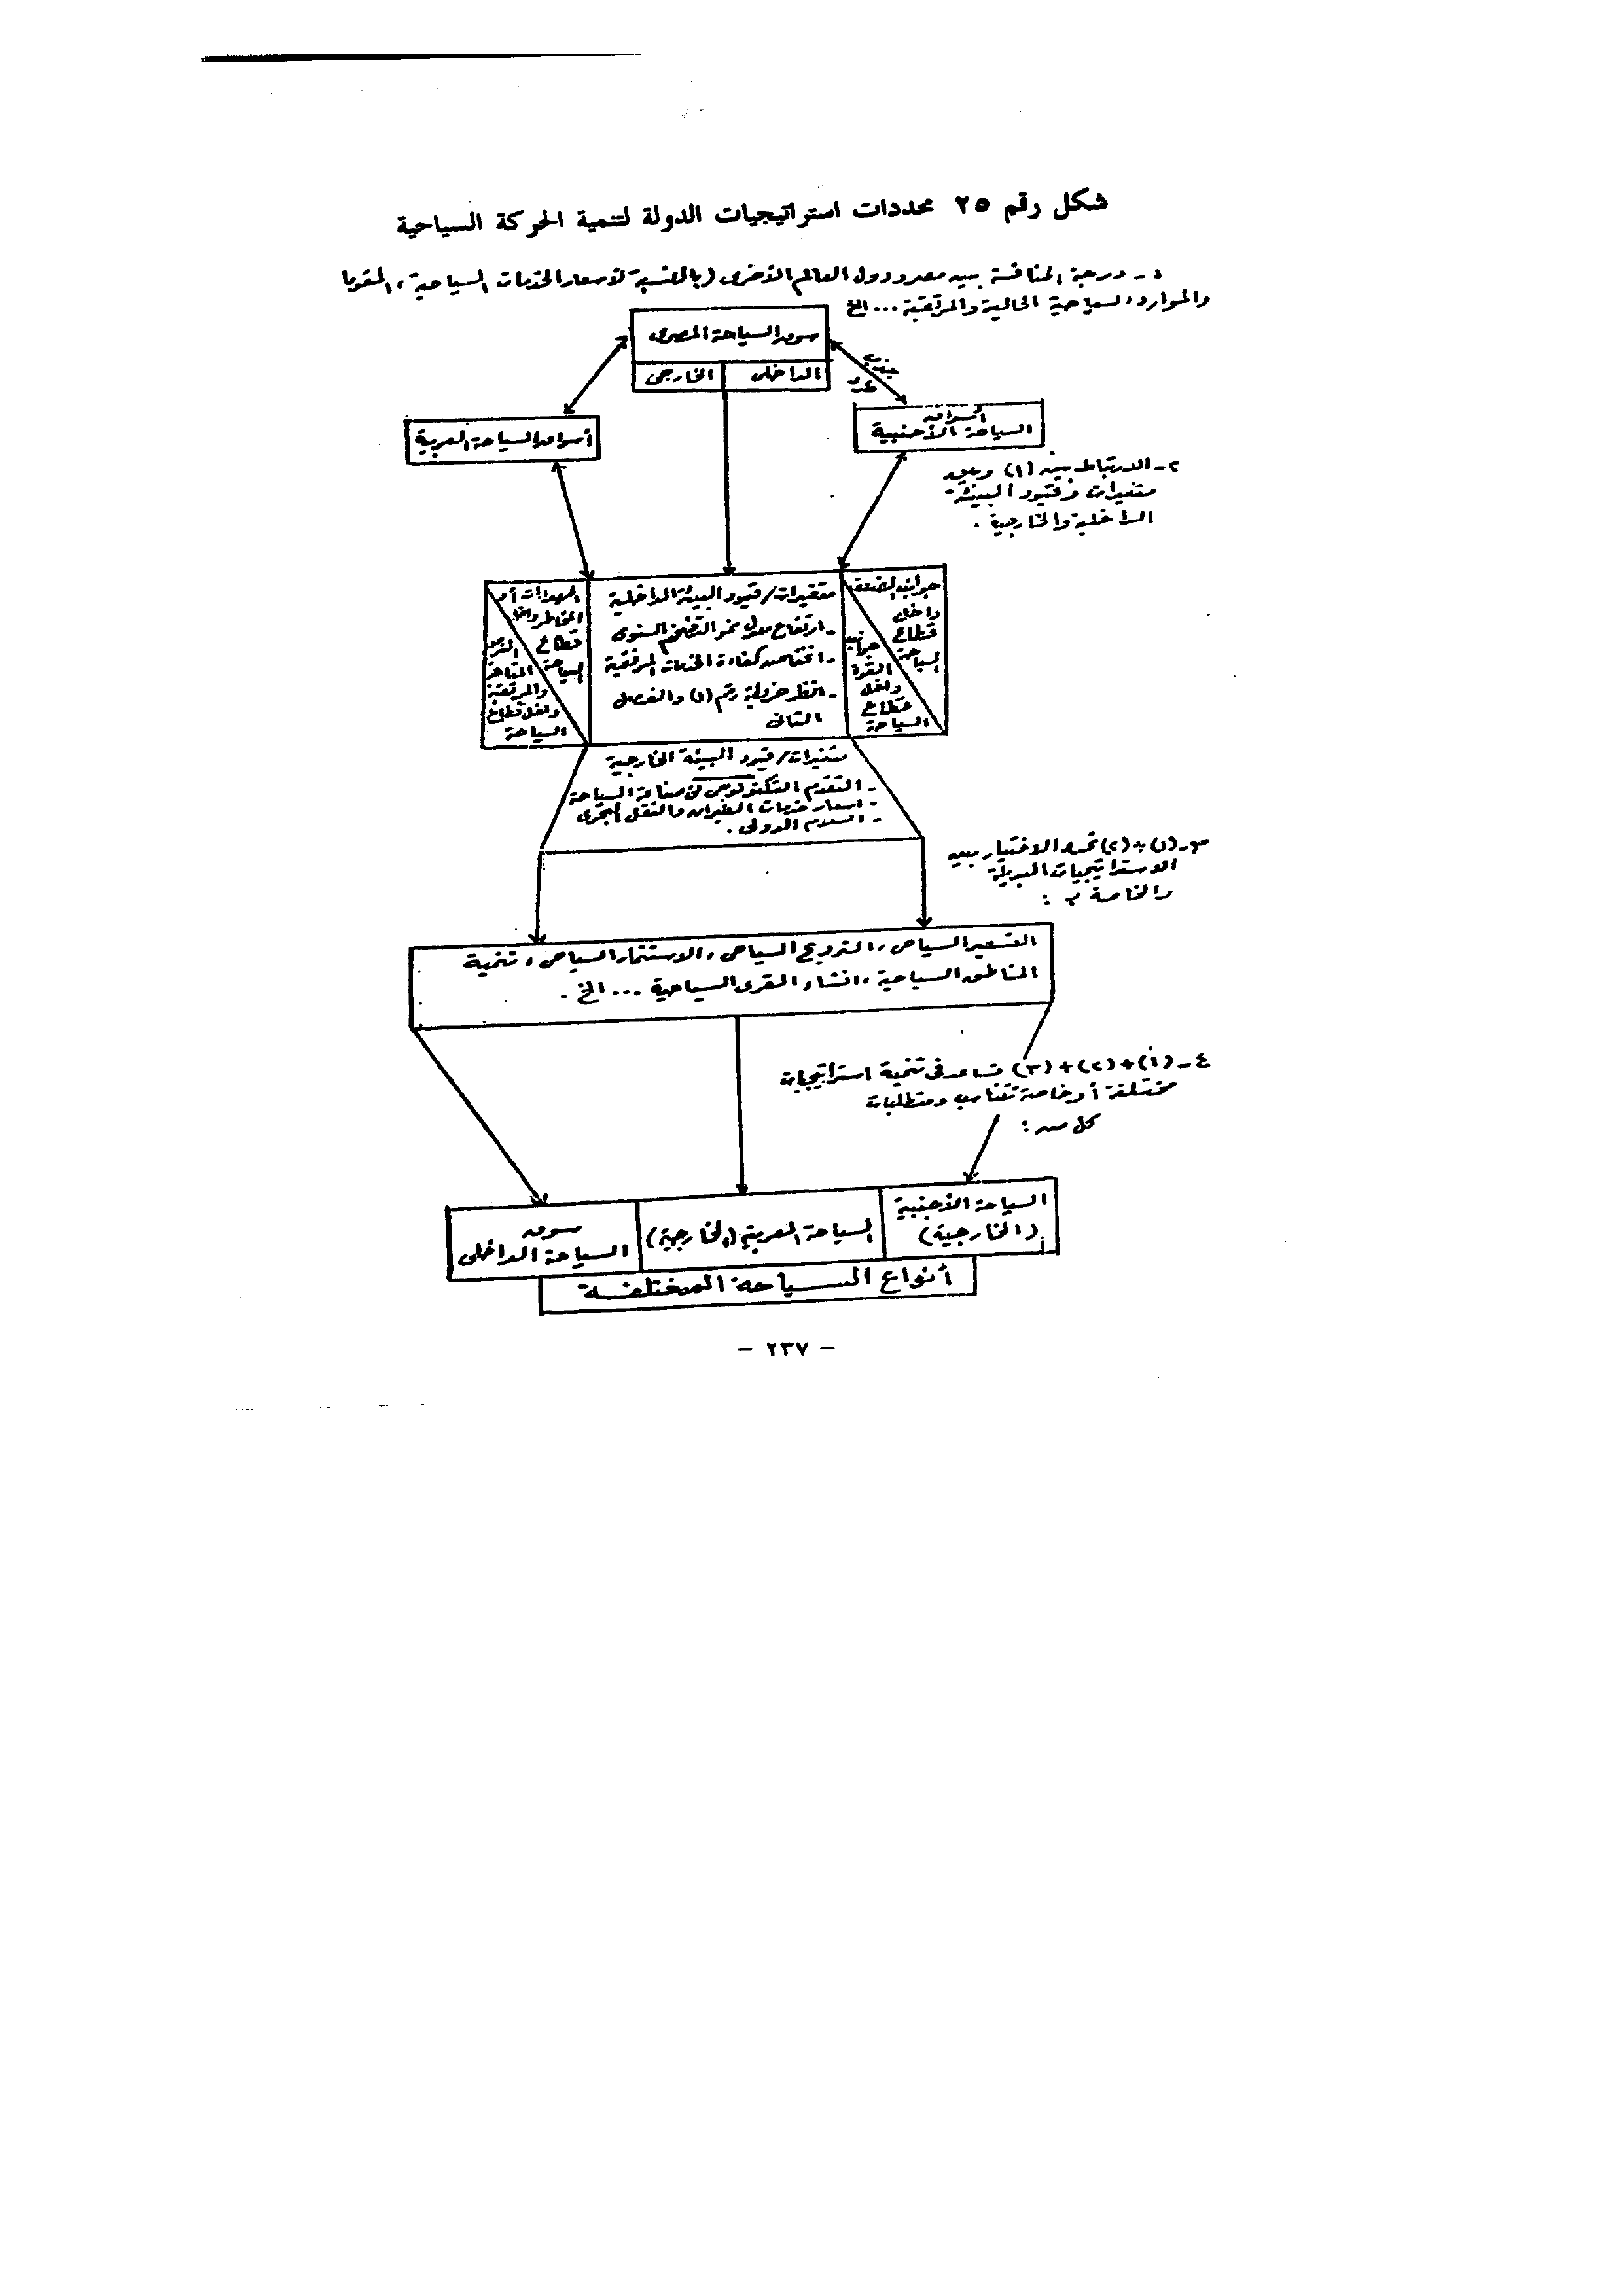 شكل رقم ٢٥ محددات استراتيجيات الدولة لتنمية الحركة السياحية
١ـ درجة المنافسة بين مصر ودول العالم الأخرى (بالنسبة لأسعار الخدمات السياحية، المقوما
والموارد السياحية الحالية والمرتقبة ... الخ
سوق السياحة المصرى
الداخلى
الخارجى
أسواق
السياحة الأجنبية
أسواق السياحة العربية
٢ـ الارتباط بين (١) وبعض
متغيرات وقيود البيئة
الداخلية والخارجية .
جوانب الضعف
داخل
قطاع
السياحة
جوانب
القوة
داخل
قطاع
السياحة
متغيرات/قيود البيئة الداخلية
ـ ارتفاع معدل نمو التضخم السنوى
ـ انخفاض كفاءة الخدمات المرفقية
ـ انظر جدول رقم (١) والفصل
الثانى
المهددات أو
المخاطر داخل
قطاع
السياحة
الفرص
المتاحة
والمرتقبة
داخل قطاع
السياحة
متغيرات/قيود البيئة الخارجية
ـ التقدم التكنولوجى فى صناعة السياحة
ـ أسعار خدمات الطيران والنقل البحرى
ـ السلام الدولى .
٣ـ (١) + (٢) تحدد الاختيار بين
الاستراتيجيات البديلة
والخاصة بـ :
التسعير السياحى ، الترويج السياحى ، الاستثمار السياحى ، تنمية
المناطق السياحية ، انشاء القرى السياحية ... الخ .
٤ـ (١) + (٢) + (٣) تساعد فى تنمية استراتيجيات
مختلفة أو خاصة تتناسب ومتطلبات
كل من :
السياحة الأجنبية
(الخارجية)
السياحة العربية (الخارجية)
سوق
السياحة الداخلى
أنواع السياحة المختلفة
– ٢٣٧ –